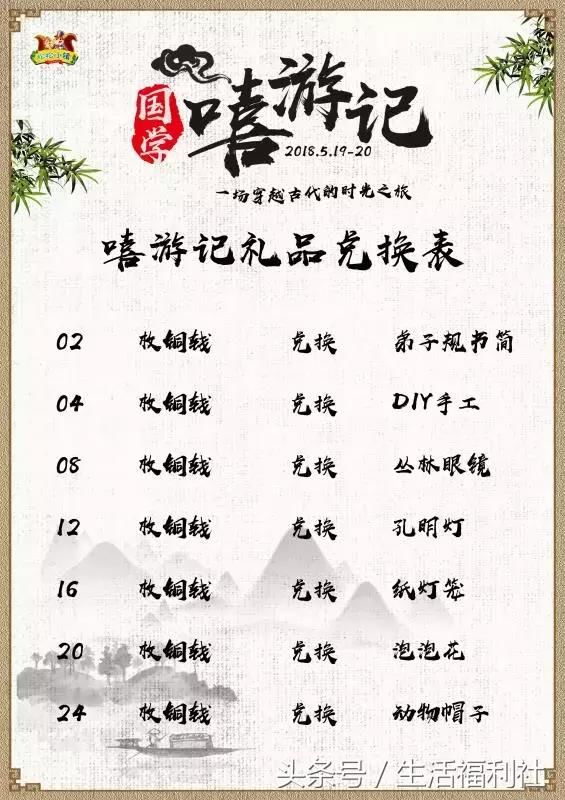 国学
嘻游记
2018.5.19-20
一场穿越古代的时光之旅
嘻游记礼品兑换表
02 枚铜钱 兑换 弟子规书简
04 枚铜钱 兑换 DIY手工
08 枚铜钱 兑换 丛林眼镜
12 枚铜钱 兑换 孔明灯
16 枚铜钱 兑换 纸灯笼
20 枚铜钱 兑换 泡泡花
24 枚铜钱 兑换 动物帽子
头条号/生活福利社